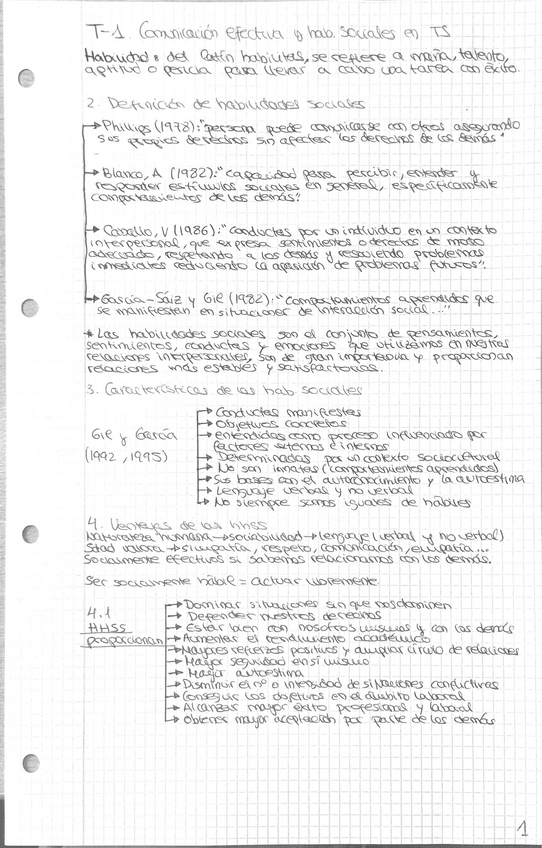 T-1. Comunicación efectiva y hab. sociales en TS
Habilidad: del latín habilitas, se refiere a maña, talento,
aptitud o pericia para llevar a cabo una tarea con éxito.
2. Definición de habilidades sociales
→ Phillips (1978): "persona puede comunicarse con otros asegurando
sus propios derechos sin afectar los derechos de los demás"
→ Blanco, A (1982): "capacidad para percibir, entender y
responder estímulos sociales en general, específicamente
comportamientos de los demás".
→ Caballo, V (1986): "conductas por un individuo en un contexto
interpersonal, que expresa sentimientos o derechos de modo
adecuado, respetando a los demás y resolviendo problemas
inmediatos reduciendo la aparición de problemas futuros".
→ García-Sáiz y Gil (1982): "Comportamientos aprendidos que
se manifiestan en situaciones de interacción social..."
* Las habilidades sociales son el conjunto de pensamientos,
sentimientos, conductas y emociones que utilizamos en nuestras
relaciones interpersonales, son de gran importancia y proporcionan
relaciones más estables y satisfactorias.
3. Características de las hab. sociales
Gil y García
(1992, 1995)
→ Conductas manifiestas
→ Objetivos concretos
→ entendidas como proceso influenciado por
factores externos e internos
→ Determinadas por un contexto sociocultural
→ No son innatas (comportamientos aprendidos)
→ Sus bases son el autoconocimiento y la autoestima
→ Lenguaje verbal y no verbal
→ No siempre somos iguales de hábiles
4. Ventajas de las hhss
Naturaleza humana → sociabilidad → lenguaje (verbal y no verbal)
Stad valora → simpatía, respeto, comunicación, empatía...
Socialmente efectivos si sabemos relacionarnos con los demás.
Ser socialmente hábil = actuar libremente
4.1
HHSS
proporcionan
→ Dominar situaciones sin que nos dominen
→ Defender nuestros derechos
→ Estar bien con nosotros mismos y con los demás
→ Aumentar el rendimiento académico
→ Mayores refuerzos positivos y ampliar círculo de relaciones
→ Mayor seguridad en sí mismo
→ Mayor autoestima
→ Disminuir el nº o intensidad de situaciones conflictivas
→ Conseguir los objetivos en el ámbito laboral
→ Alcanzar mayor éxito profesional y laboral
→ Obtener mayor aceptación por parte de los demás
1